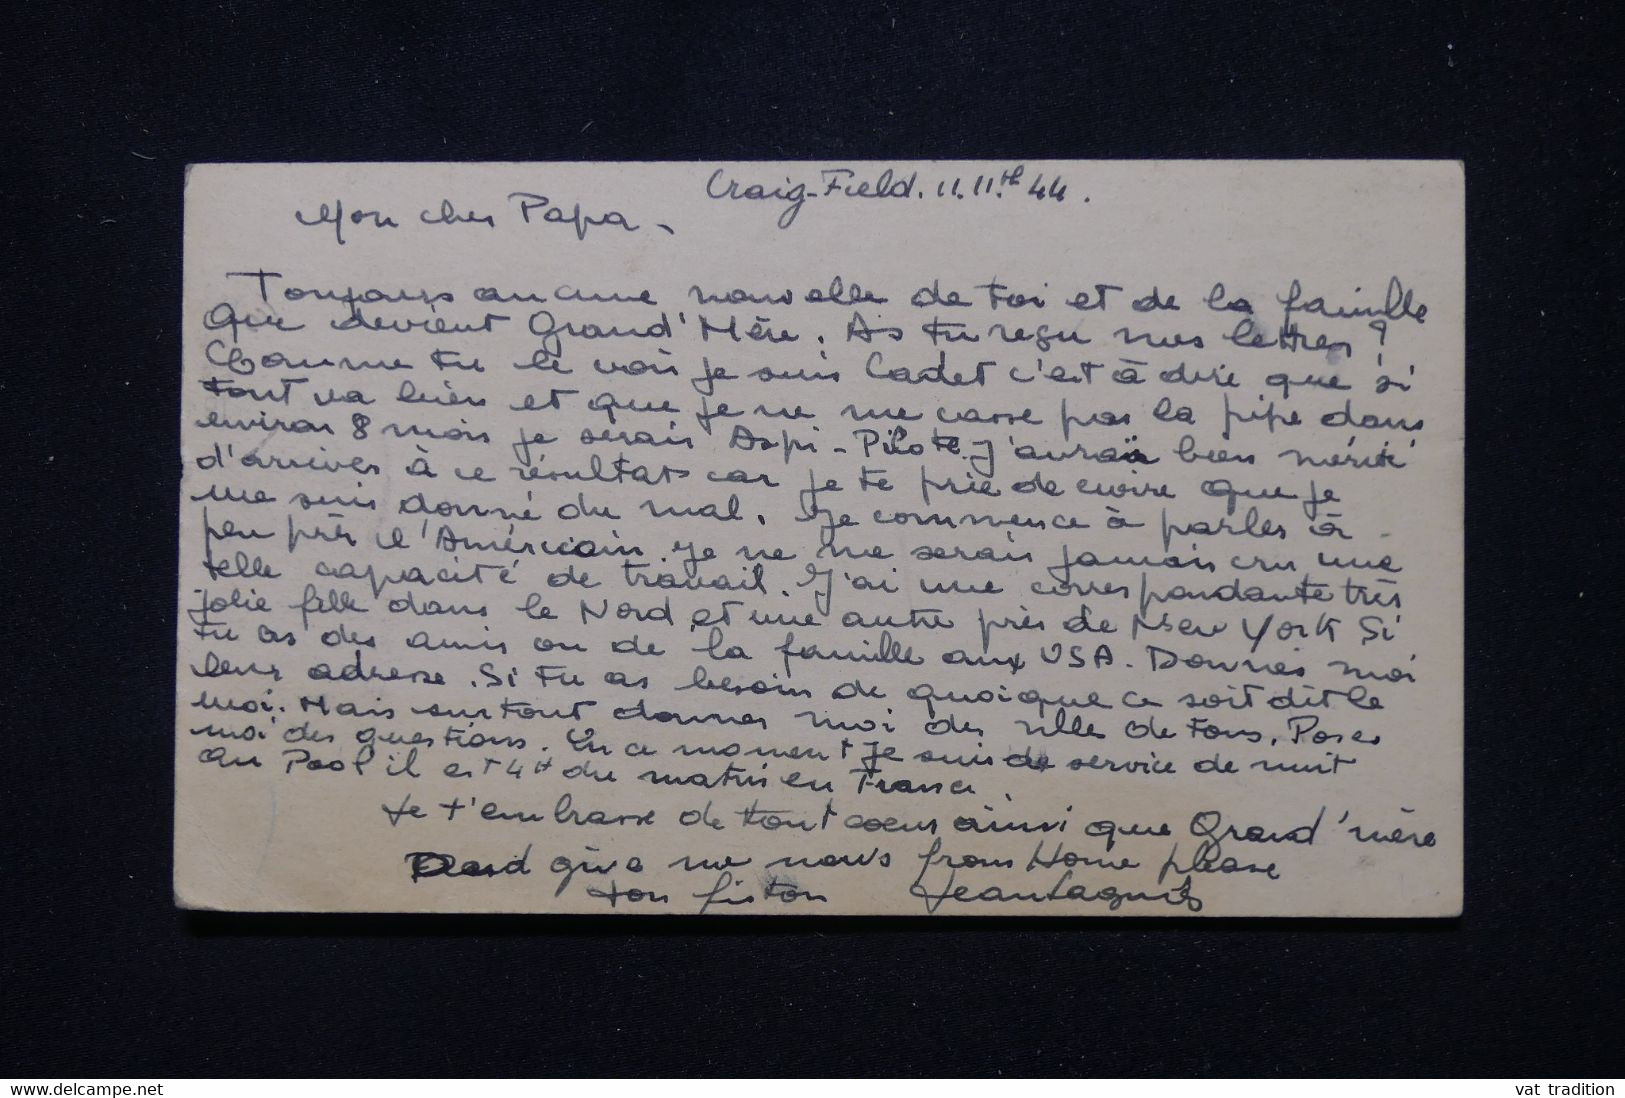 Craig-Field. 11.11.th 44.
Mon cher Papa.
Toujours aucune nouvelle de toi et de la famille
Que devient Grand'Mère. As tu reçu mes lettres ?
Comme tu le vois je suis Cadet c'est à dire que si
tout va bien et que je ne me casse pas la pipe dans
environ 8 mois je serais Aspi-Pilote. J'aurai bien mérité
d'arriver à ce résultats car je te prie de croire que je
me suis donné du mal. Je commence à parler à
peu près l'Américain. Je ne me serais jamais cru une
telle capacité de travail. J'ai une correspondante très
jolie fille dans le Nord et une autre près de New York Si
tu as des amis ou de la famille aux USA. Donnes moi
leur adresse. Si tu as besoin de quoique ce soit dit le
moi. Mais surtout donnes moi des de tous. Poses
moi des questions. En ce moment je suis de service de nuit
au Pool il est 4h du matin en France.
Je t'embrasse de tout coeur ainsi que Grand'mère
Dad give me news from Home please
ton fiston Jean
www.delcampe.net
vat tradition